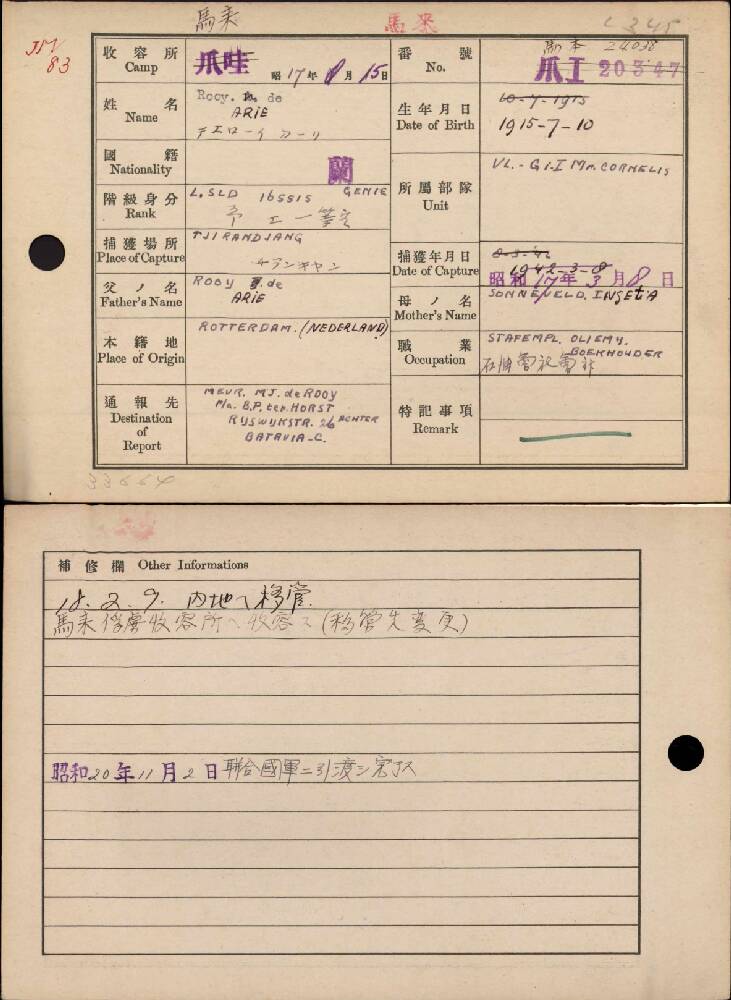 馬来
馬来
JM
83
收容所
Camp
爪哇
昭17年8月15日
番號
No.
馬来 24038
爪I 20347
姓名
Name
Rooy. de
ARIE
生年月日
Date of Birth
10-7-1915
1915-7-10
國籍
Nationality
蘭
階級身分
Rank
L.SLD 165515 GENIE
所屬部隊
Unit
VL.-G.I-I Mr. CORNELIS
捕獲場所
Place of Capture
TJIRANDJANG
チランヂヤン
捕獲年月日
Date of Capture
8-3-'42
1942-3-8
昭和17年3月8日
父ノ名
Father's Name
Rooy de
ARIE
母ノ名
Mother's Name
SONNEVELD. INGETJA
本籍地
Place of Origin
ROTTERDAM. (NEDERLAND)
職業
Occupation
STAFEMPL. OLIEMY.
BOEKHOUDER
通報先
Destination
of
Report
MEVR. MJ. de ROOY
P/a. B.P. ter. HORST
RIJSWIJKSTR. 26 ACHTER
BATAVIA-C.
特記事項
Remark
33664
補修欄 Other Informations
18. 2. 9. 内地へ移管.
馬来俘虜收容所ヘ收容ス(移管先変更)
昭和20年11月2日 聯合國軍ニ引渡シ完了ス